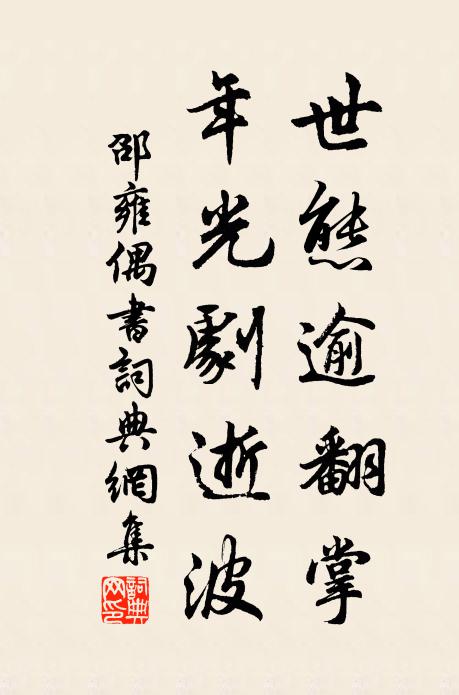 世態逾翻掌
年光劇逝波
邵雍偶書詞典網集
詞典
网印